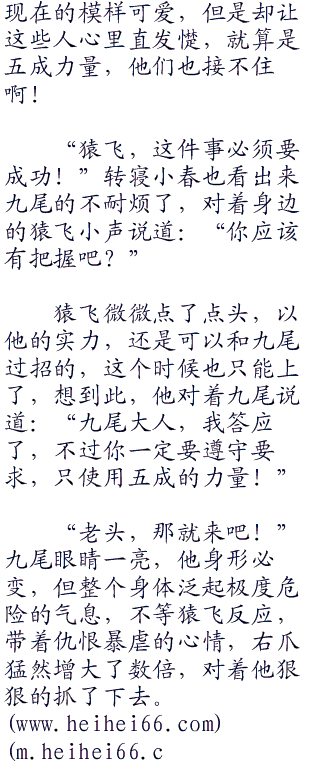 现在的模样可爱，但是却让
这些人心里直发憷，就算是
五成力量，他们也接不住
啊！
“猿飞，这件事必须要
成功！”转寝小春也看出来
九尾的不耐烦了，对着身边
的猿飞小声说道：“你应该
有把握吧？”
猿飞微微点了点头，以
他的实力，还是可以和九尾
过招的，这个时候也只能上
了，想到此，他对着九尾说
道：“九尾大人，我答应
了，不过你一定要遵守要
求，只使用五成的力量！”
“老头，那就来吧！”
九尾眼睛一亮，他身形必
变，但整个身体泛起极度危
险的气息，不等猿飞反应，
带着仇恨暴虐的心情，右爪
猛然增大了数倍，对着他狠
狠的抓了下去。
(www.heihei66.com)
(m.heihei66.c